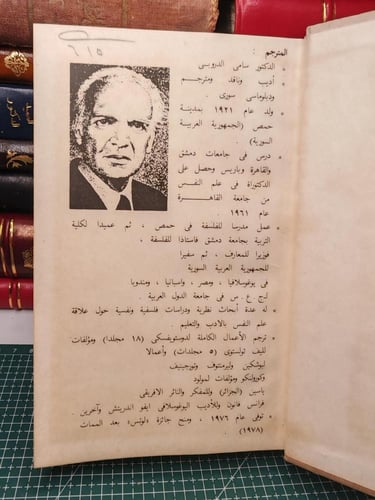 ٦١٥
المترجم :
• الدكتور سامى الدروبى
• أديب وناقد ومترجم
ودبلوماسى سورى .
• ولد عام ١٩٢١ بمدينة
حمص (الجمهورية العربية
السورية) .
• درس فى جامعات دمشق
والقاهرة وباريس وحصل على
الدكتوراة فى علم النفس
من جامعة القاهرة
عام ١٩٦١
• عمل مدرسا للفلسفة فى حمص ، ثم عميدا لكلية
التربية بجامعة دمشق فأستاذا للفلسفة ،
فوزيرا للمعارف ، ثم سفيرا
للجمهورية العربية السورية
فى يوغسلافيا ، ومصر ، واسبانيا ، ومندوبا
لـ ج . ع . س فى جامعة الدول العربية .
• له عدة أبحاث نظرية ودراسات فلسفية ونفسية حول علاقة
علم النفس بالادب والتعليم .
• ترجم الأعمال الكاملة لدوستويفسكى (١٨ مجلدا) ومؤلفات
لليف تولستوى (٥ مجلدات) وأعمالا
لبوشكين وليرمنتوف وتورجينيف
وكورولنكو ومؤلفات لمولود
ياسين (الجزائر) وللمفكر والثائر الافريقى
فرانس فانون وللأديب اليوغوسلافى ايفو اندريتش وآخرين .
• توفى عام ١٩٧٦ ، ومنح جائزة «لوتس» بعد الممات
(١٩٧٨) .